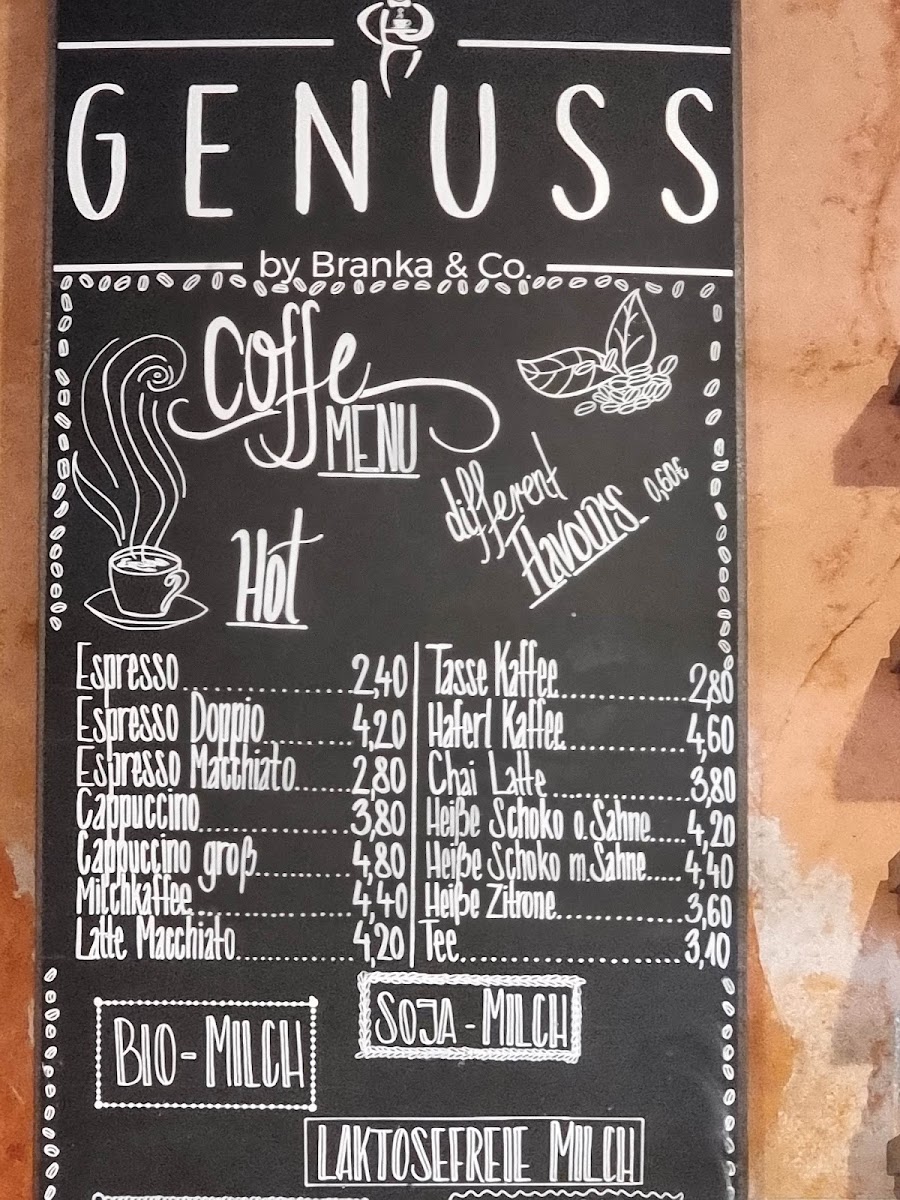 GENUSS
by Branka & Co.
Coffe
MENU
different
flavours 0,60€
Hot
Espresso..................2,40
Espresso Doppio..........4,20
Espresso Matthiato......2,80
Cappuccino................3,80
Cappuccino groß..........4,80
Milchkaffee................4,40
Latte Macchiato...........4,20
Tasse Kaffee..............2,80
Haferl Kaffee.............4,60
Chai Latte................3,80
Heiße Schoko o.Sahne....4,20
Heiße Schoko m.Sahne....4,40
Heiße Zitrone.............3,60
Tee........................3,10
SOJA-MILCH
BIO-MILCH
LAKTOSEFREIE MILCH